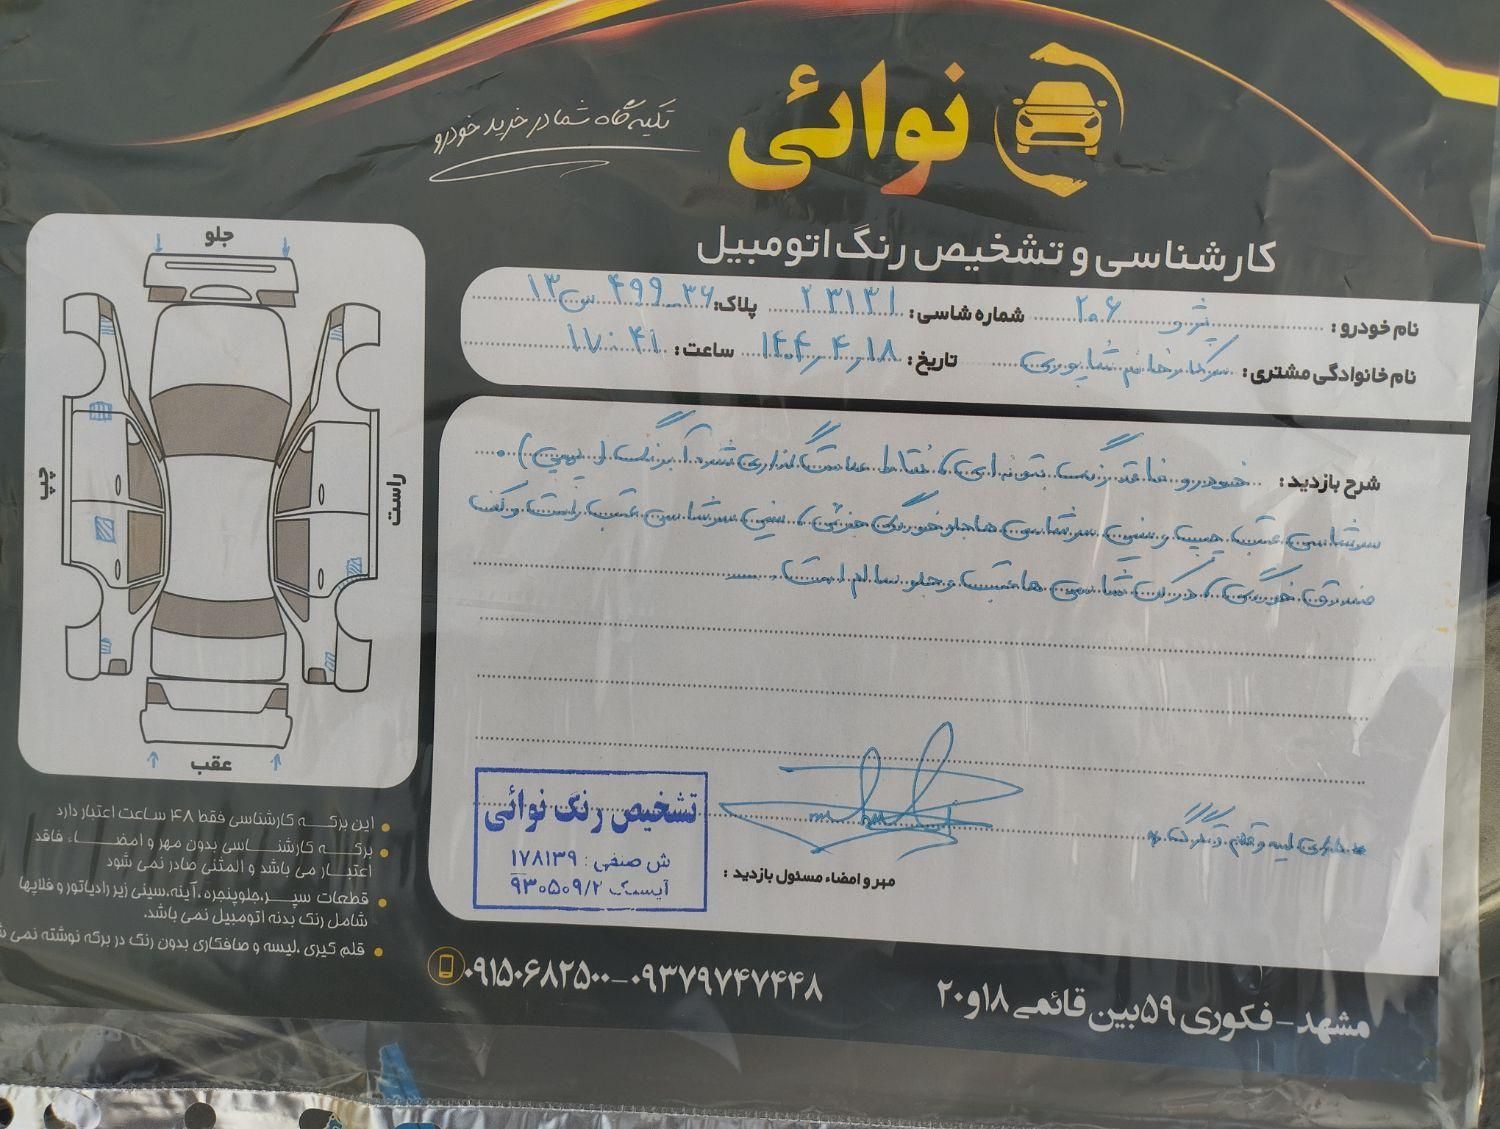 نوائی
تکیه گاه شما در خرید خودرو
کارشناسی و تشخیص رنگ اتومبیل
نام خودرو : پژو ۲۰۶ شماره شاسی : ۲۳۱۳۱ پلاک: ۳۶ـ۴۹۹س۱۳
نام خانوادگی مشتری : سرکار خانم شاپوری تاریخ : ۱۴۰۴٫۴٫۱۸ ساعت : ۱۷:۴۱
شرح بازدید : خودرو فاقد رنگ بتونه ای، نقاط علامت گذاری شده آبرنگ (لیسی).
سرشاسی عقب چپ و سینی سرشاسی ها جلو خوردگی جزئی، سینی سرشاسی عقب راست و کف
صندوق خوردگی، ستون شاسی ها عقب و جلو سالم است
* دارای لیسه و قلم و تگرگ *
مهر و امضاء مسئول بازدید :
تشخیص رنگ نوائی
ش صنفی : ۱۷۸۱۳۹
آیسیک ۹۳۰۵۰۹/۲
جلو
چپ
راست
عقب
این برگه کارشناسی فقط ۴۸ ساعت اعتبار دارد
برگه کارشناسی بدون مهر و امضاء فاقد
اعتبار می باشد و المثنی صادر نمی شود
قطعات سپر،جلوپنجره ،آینه،سینی زیر رادیاتور و فلاپها
شامل رنگ بدنه اتومبیل نمی باشد.
قلم گیری ،لیسه و صافکاری بدون رنگ در برگه نوشته نمی ش
۰۹۱۵۰۶۸۲۵۰۰-۰۹۳۷۹۷۴۷۴۴۸
مشهد- فکوری ۵۹ بین قائمی ۱۸و۲۰